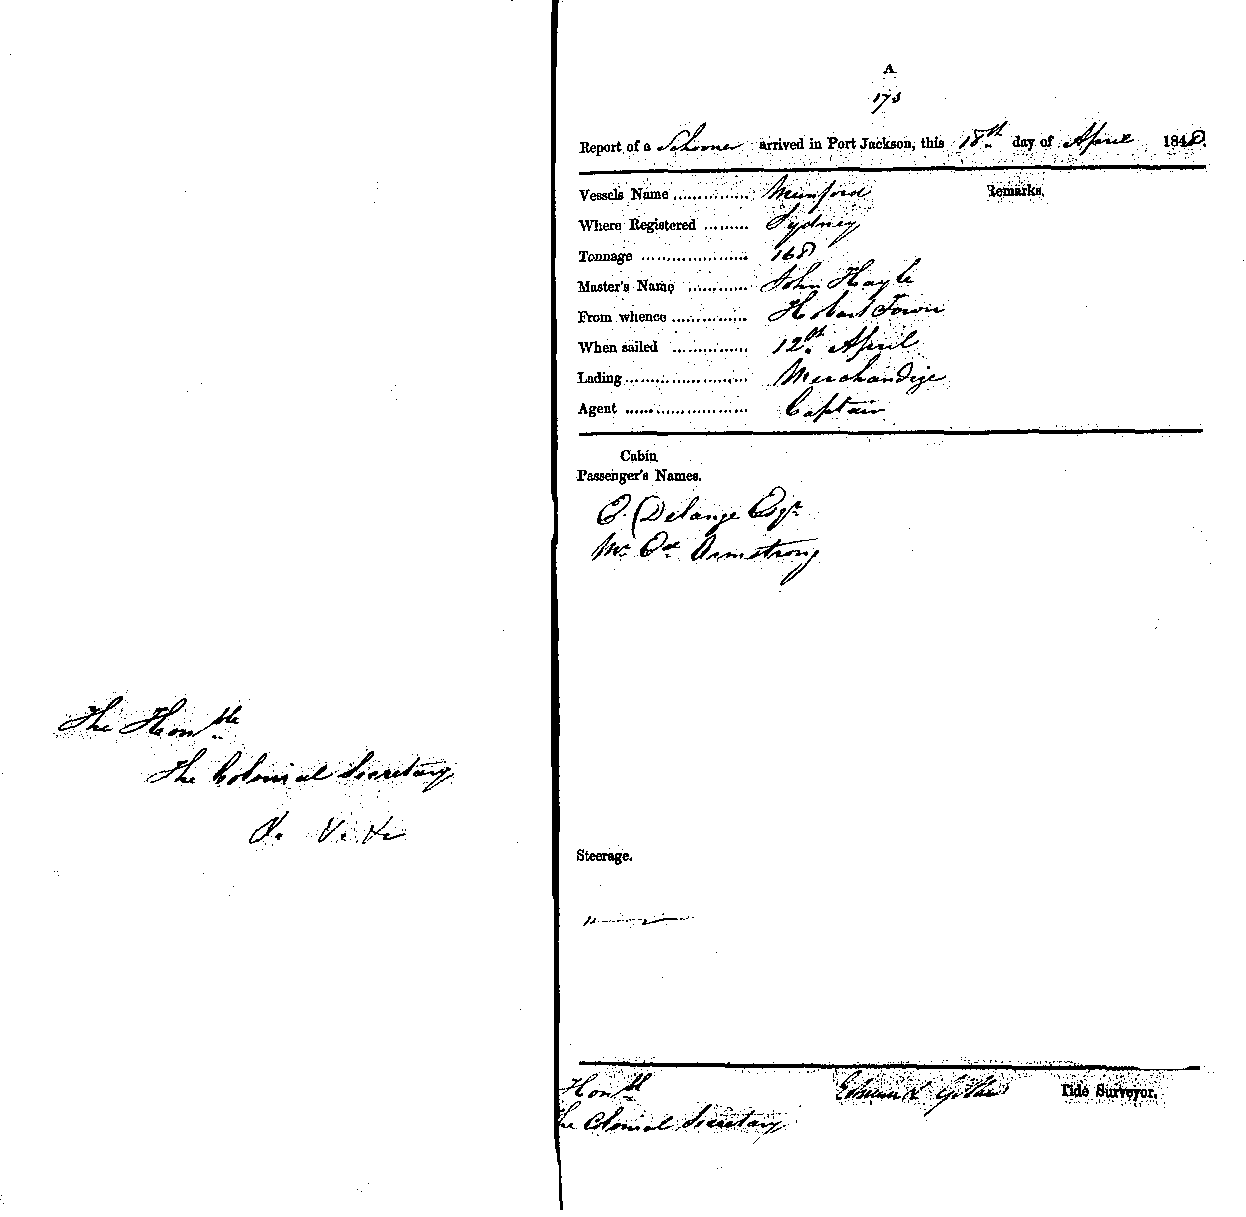 The Honble
The Colonial Secretary
A
173
Report of a Schooner arrived in Port Jackson, this 18th day of April 1848.
Vessels Name .............. Munford
Remarks.
Where Registered ......... Sydney
Tonnage ..................... 168
Master's Name ............ John Hayle
From whence ............... Hobart Town
When sailed ............... 12th April
Lading ........................ Merchandize
Agent ........................ Captain
Cabin
Passenger's Names.
E. Delange Esqr
Mr Ed Armstrong
Steerage.
Honble
The Colonial Secretary
Tide Surveyor.